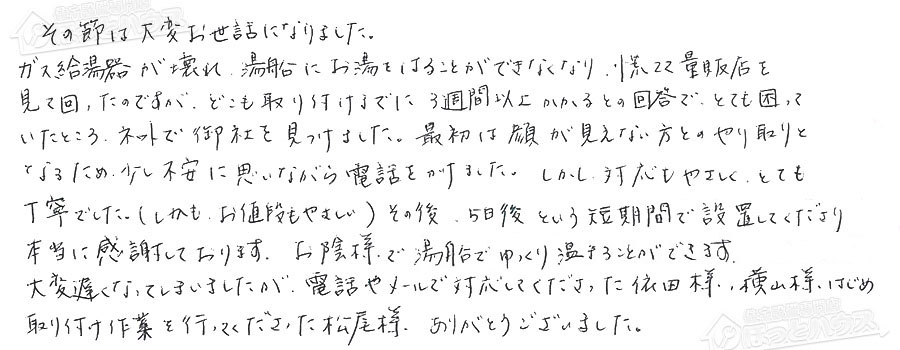 その節は大変お世話になりました。
ガス給湯器が壊れ、湯船にお湯をはることができなくなり、慌てて量販店を
見て回ったのですが、どこも取り付けまでに3週間以上かかるとの回答で、とても困って
いたところ、ネットで御社を見つけました。最初は顔が見えない方とのやり取りと
なるため、少し不安に思いながら電話をかけました。しかし、対応もやさしく、とても
丁寧でした。(しかも、お値段もやさしい)その後、5日後という短期間で設置してくださり
本当に感謝しております。お陰様で湯船でゆっくり温まることができます。
大変遅くなってしまいましたが、電話やメールで対応してくださった依田様、横山様、はじめ
取り付け作業を行ってくださった松尾様、ありがとうございました。